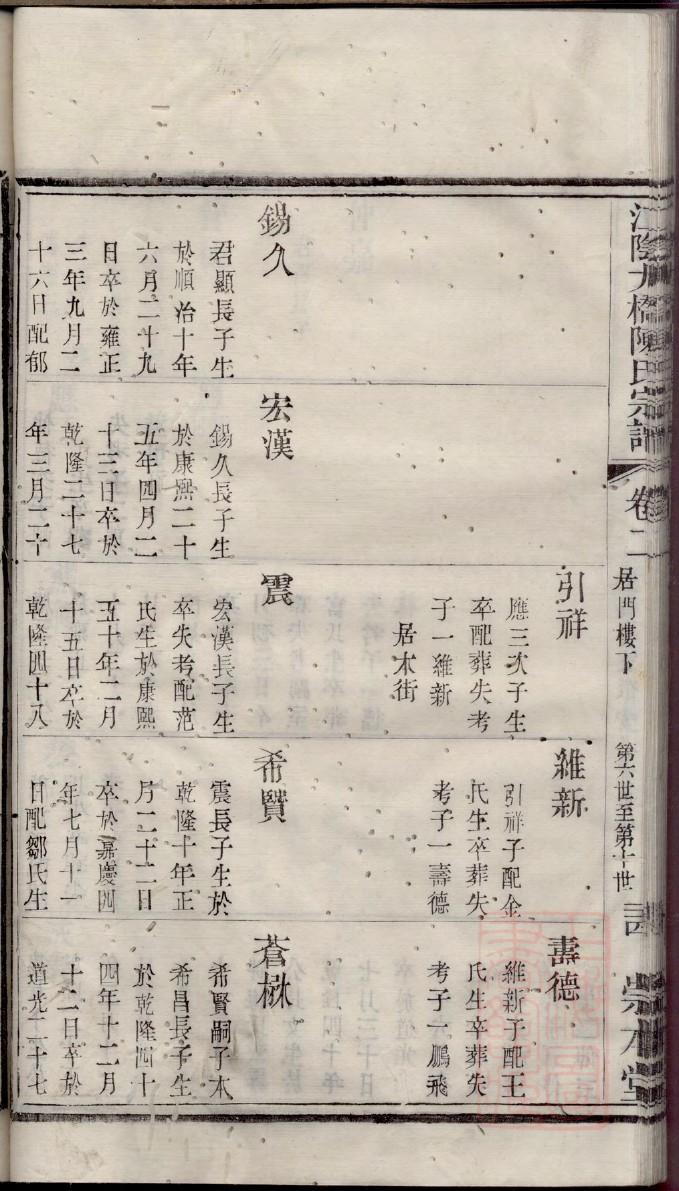 江陰九橋陳氏宗譜
卷二
居門樓下
第六世至第十世
崇本堂
引祥
應三次子生
卒配葬失考
子一維新
居木街
維新
引祥子配金
氏生卒葬失
考子一壽德
壽德
維新子配王
氏生卒葬失
考子一鵬飛
錫久
君顯長子生
於順治十年
六月二十九
日卒於雍正
三年九月二
十六日配郁
宏漢
錫久長子生
於康熙二十
五年四月二
十三日卒於
乾隆二十七
年三月二十
震
宏漢長子生
卒失考配范
氏生於康熙
五十年二月
十五日卒於
乾隆四十八
希賢
震長子生於
乾隆十年正
月二十二日
卒於嘉慶四
年七月十一
日配鄒氏生
蒼楙
希賢嗣子本
希昌長子生
於乾隆四十
四年十二月
十二日卒於
道光二十七